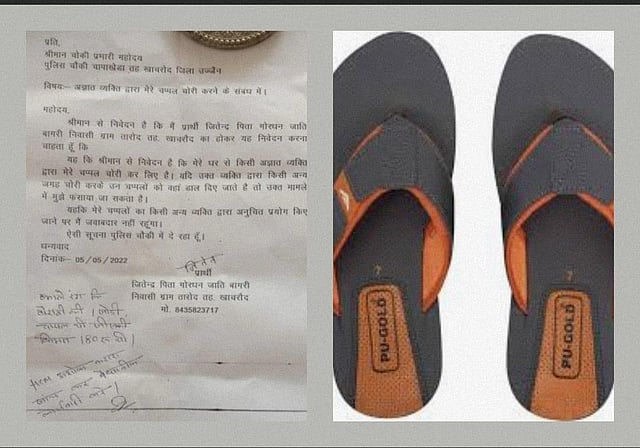 प्रति,
श्रीमान चोकी प्रभारी महोदय
पुलिस चौकी चापाखेडा तह खाचरोद जिला उज्जैन
विषयः- अज्ञात व्यक्ति द्वारा मेरे चप्पल चोरी करने के संबध में।
महोदय,
श्रीमान से निवेदन है कि मैं प्रार्थी जितेन्द्र पिता गोरधन जाति
बागरी निवासी ग्राम तारोद तह. खाचरोद का होकर यह निवेदन करना
चाहता हूँ कि
यह कि श्रीमान से निवेदन है कि मेरे घर से किसी अज्ञात व्यक्ति
द्वारा मेरे चप्पल चोरी कर लिए है। यदि उक्त व्यक्ति द्वारा किसी अन्य
जगह चोरी करके उन चप्पलों को वहां डाल दिए जाते है तो उक्त मामले
में मुझे फसाया जा सकता है।
यहकि मेरे चप्पलों का किसी अन्य व्यक्ति द्वारा अनुचित प्रयोग किए
जाने पर मैं जवाबदार नहीं रहूंगा।
ऐसी सूचना पुलिस चौकी में दे रहा हूँ।
धन्यवाद
दिनांक- 05/05/2022
प्रार्थी
जितेन्द्र पिता गोरधन जाति बागरी
निवासी ग्राम तारोद तह. खाचरौद
मो. 8435823717
काले रंग कि
की 1 जोडी
चप्पल थी जिसकी
किमत 180 रू थी।
7
PU-GOLD
7
PU-GOLD